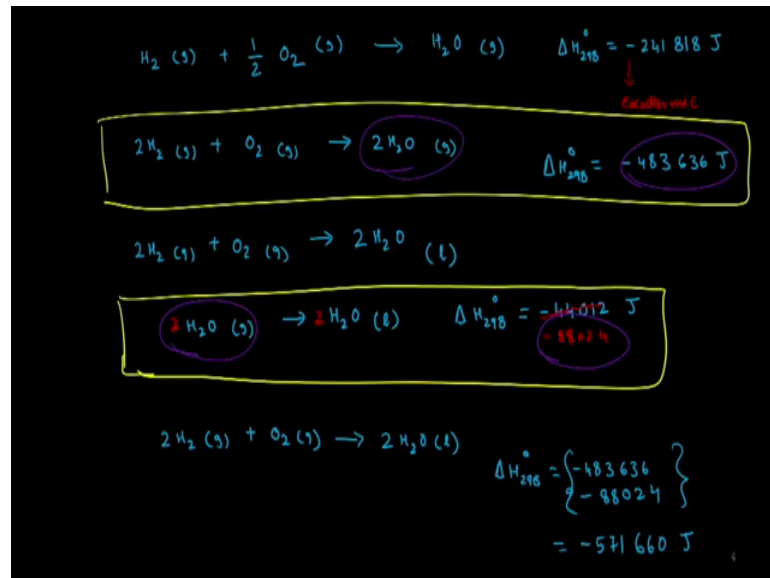 H₂ (g) + 1/2 O₂ (g) → H₂O (g) ΔH°₂₉₈ = - 241 818 J
2H₂ (g) + O₂ (g) → 2H₂O (g) ΔH°₂₉₈ = - 483 636 J
2H₂ (g) + O₂ (g) → 2H₂O (l)
2 H₂O (g) → 2 H₂O (l) ΔH°₂₉₈ = -44012 J
- 88024
2H₂ (g) + O₂ (g) → 2H₂O (l)
ΔH°₂₉₈ = { -483636
- 88024 }
= - 571 660 J
4